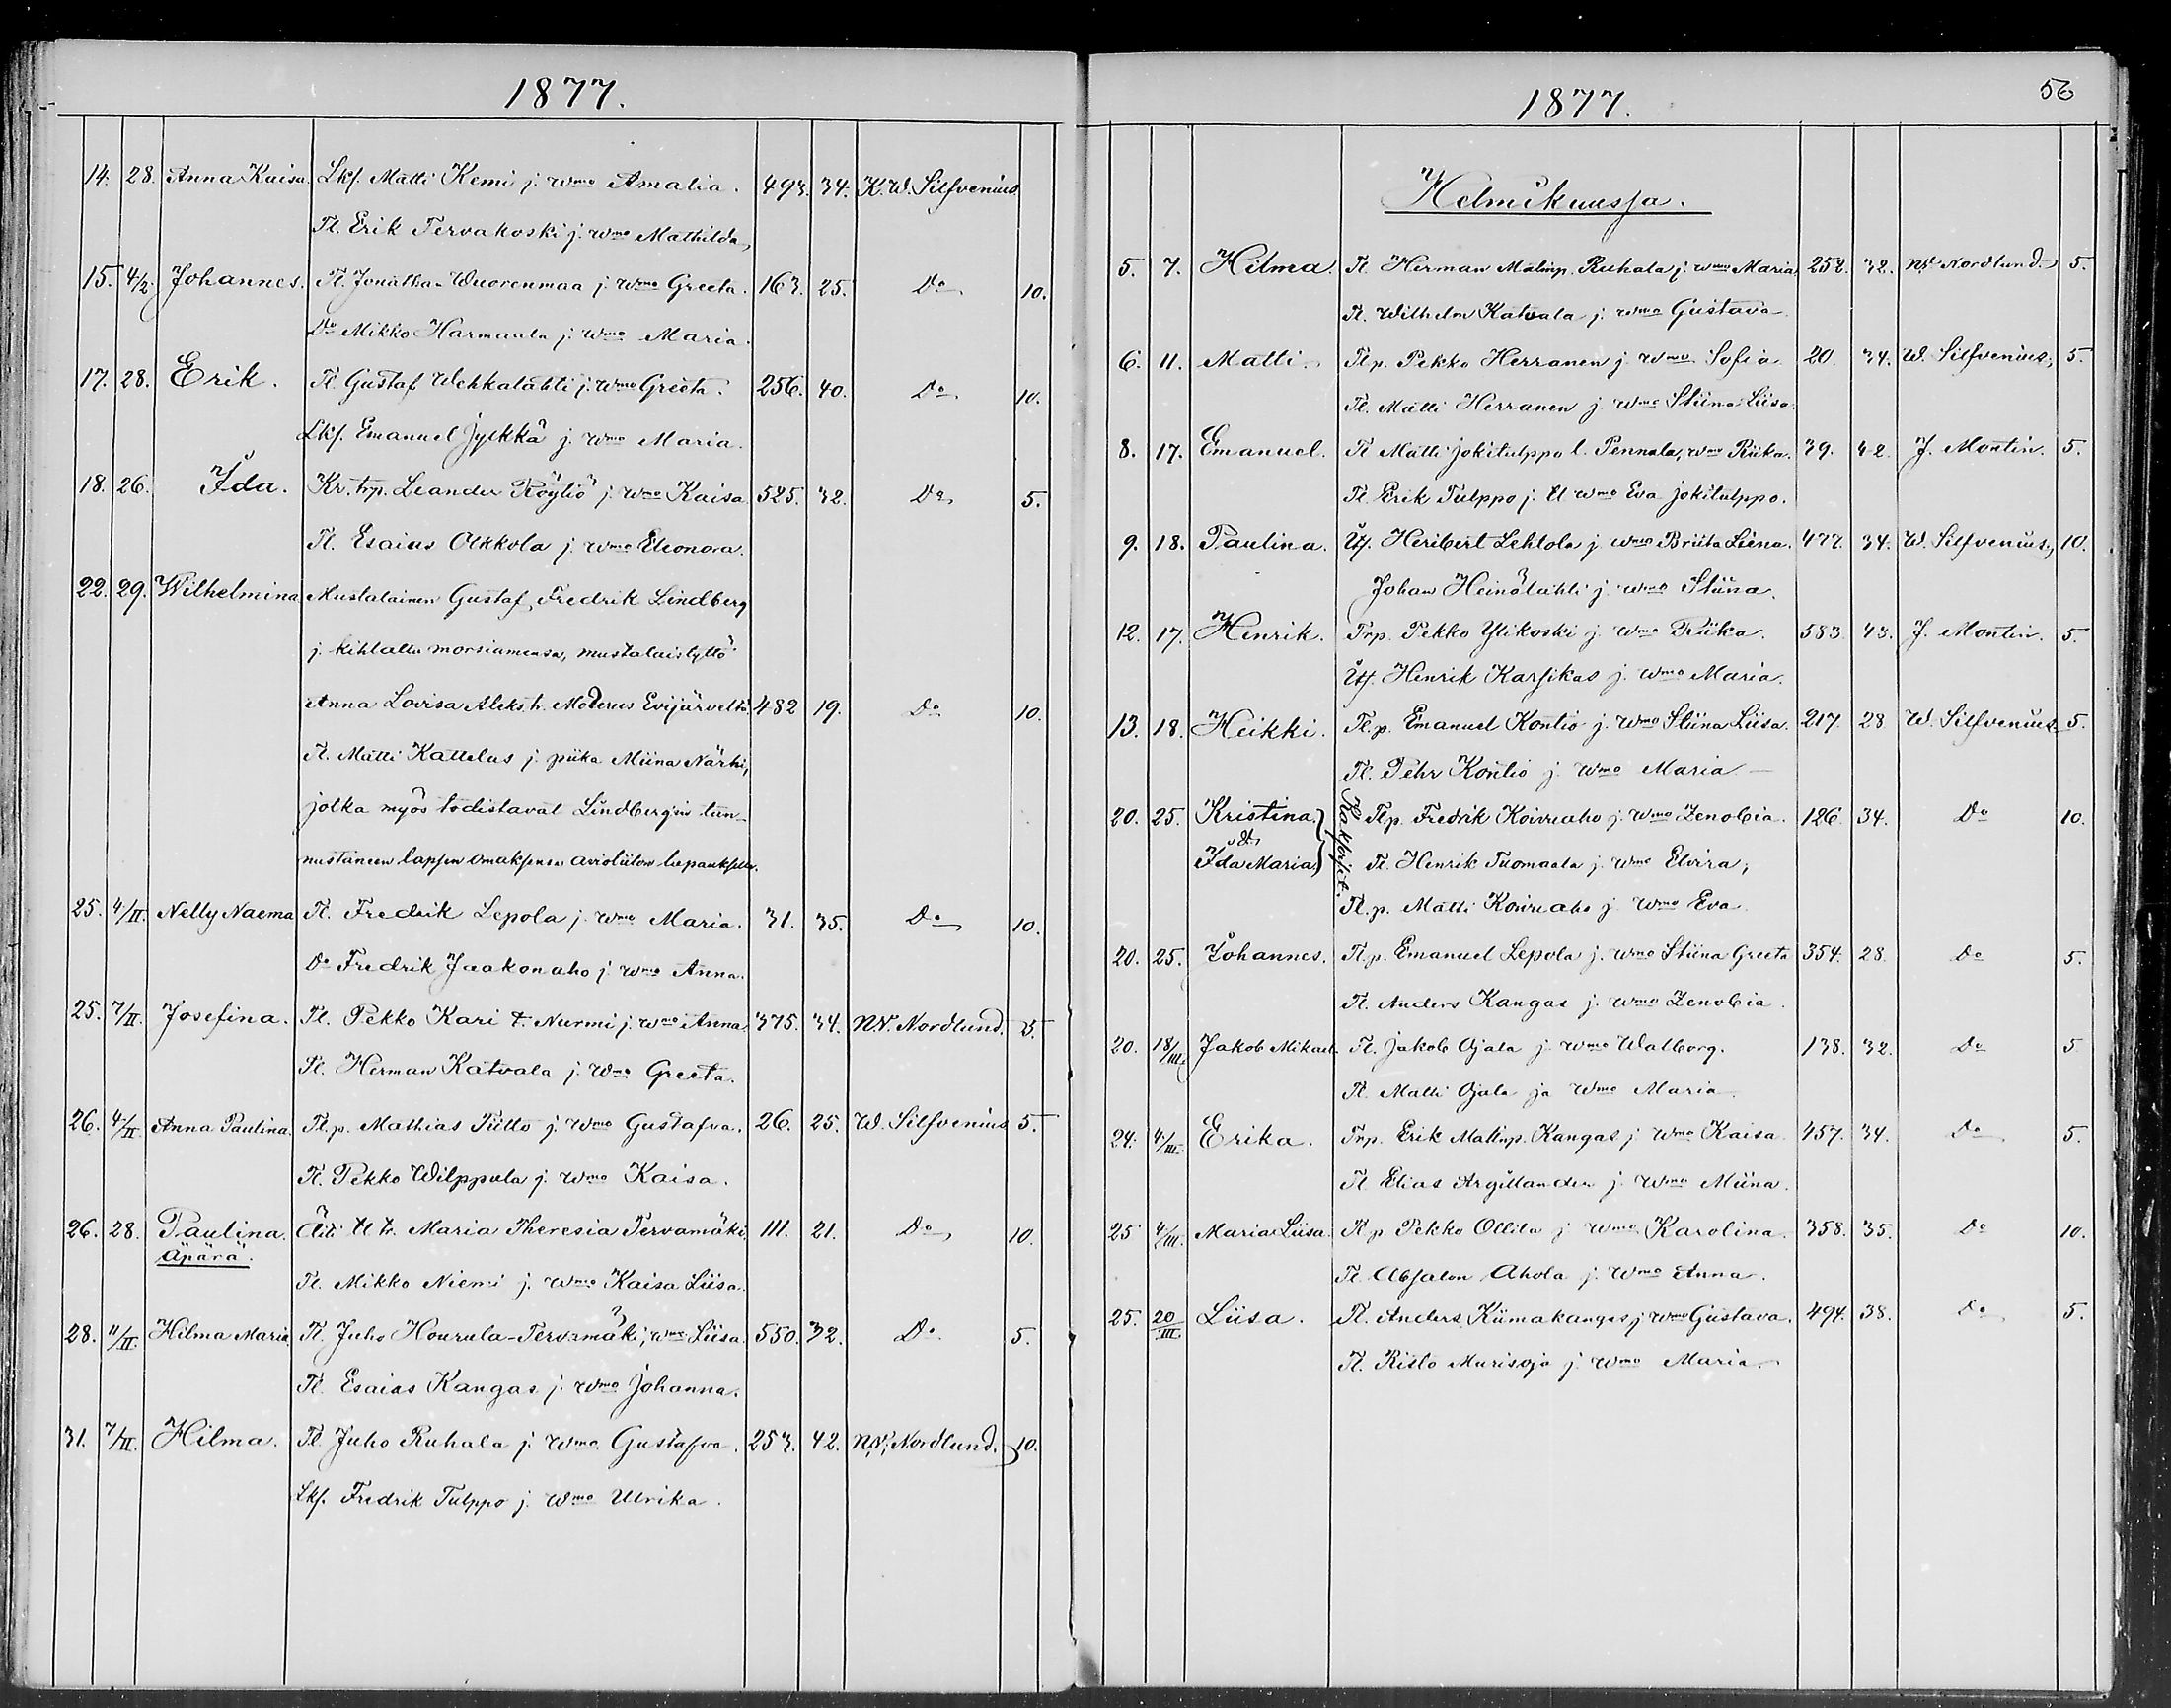 1877.
14. 28. Anna Kaisa. Lksf. Matti Kemi j. wmo Amalia. 493. 34. K. W. Silfvenius
Tl. Erik Tervakoski j. wmo Mathilda,
15. 4/2. Johannes. Tl. Jonathan Wuorenmaa j. wmo Greeta. 163. 25. Do 10.
Do Mikko Harmaala j. wmo Maria.
17. 28. Erik. Tl. Gustaf Wehkalahti j. wmo Greeta. 256. 40. Do 10.
Lksf. Emanuel Jylkkä j. wmo Maria.
18. 26. Ida. Kr. trp. Leander Röyliö j. wmo Kaisa 525. 32. Do 5.
Tl. Esaias Olkkola j. wmo Eleonora.
22. 29. Wilhelmina Mustalainen Gustaf Fredrik Lindberg
j. kihlattu morsiamensa, mustalaistyttö
Anna Lovisa Aleks. t. Moderus Evijärveltä. 482 19. Do 10.
Tl. Matti Kattelus j. piika Miina Närhi,
jotka myös todistavat Lindbergin tun-
nustaneen lapsen omaksensa avioliiton lupauksella.
25. 4/II. Nelly Naema Tl. Fredrik Lepola j. wmo Maria. 31. 35. Do 10.
Do Fredrik Jaakonaho j. wmo Anna.
25. 7/II. Josefina. Tl. Pekko Kari t. Nurmi j. wmo Anna. 375. 34. N. N. Nordlund. 5.
Tl. Herman Katvala j. wmo Greeta.
26. 4/II Anna Paulina. Tl. p. Mathias Piitto j. wmo Gustafva. 26. 25. W. Silfvenius 5.
Tl. Pekko Wilppula j. wmo Kaisa.
26. 28. Paulina. Äiti tl. tr. Maria Theresia Tervamäki. 111. 21. Do 10.
Äpärä.
Tl. Mikko Niemi j. wmo Kaisa Liisa.
28. 11/II. Hilma Maria. Tl. Juho Hourula-Tervamäki, wmo Liisa. 550. 32. Do 5.
Tl. Esaias Kangas j. wmo Johanna.
31. 7/II. Hilma. Tl. Juho Ruhala j. wmo Gustafva. 253. 42. N. N. Nordlund. 10.
Lksf. Fredrik Tulppo j. wmo Ulrika.
1877.
56
Helmikuussa.
5. 7. Hilma. Tl. Herman Matinp. Ruhala j. wmo Maria 252. 32. N. N. Nordlund. 5.
Tl. Wilhelm Katvala j. wmo Gustava
6. 11. Matti. Tlp. Pekko Herranen j. wmo Sofia. 20. 34. W. Silfvenius, 5.
Tl. Matti Herranen j. wmo Stiina Liisa.
8. 17. Emanuel. Tl Matti Jokitulppo l. Pennala, wmo Riika. 39. 42. J. Montin. 5.
Tl Erik Tulppo j. tl wmo Eva Jokitulppo.
9. 18. Paulina. Itsf. Heribert Lehtola j. wmo Briita Liena. 477. 34. W. Silfvenius, 10.
Johan Heinälahti j. wmo Stiina.
12. 17. Henrik. Trp. Pekko Ylikoski j. wmo Riika. 583. 43. J. Montin. 5.
Itsf. Henrik Karsikas j. wmo Maria.
13. 18. Heikki. Tl. p. Emanuel Kontio j. wmo Stiina Liisa. 217. 28 W. Silfvenius 5.
Tl. Pehr Kontio j. wmo Maria
20. 25. Kristina. Kaksoiset. Tlp. Fredrik Koivuaho j. wmo Zenobia. 126. 34. Do 10.
&
Ida Maria. Tl. Henrik Tuomaala j. wmo Elvira;
Tl. p. Matti Koivuaho j. wmo Eva.
20. 25. Johannes. Tl. p. Emanuel Lepola j. wmo Stiina Greeta 354. 28. Do 5.
Tl. Anders Kangas j. wmo Zenobia.
20. 18/III. Jakob Mikael. Tl. Jakob Ojala j. wmo Walborg. 138. 32. Do 5
Tl. Matti Ojala ja wmo Maria
24. 4/III. Erika. Trp. Erik Matinp. Kangas j. wmo Kaisa. 457. 34. Do 5.
Tl Elias Argillander j. wmo Miina.
25 4/III. Maria Liisa. Tl p. Pekko Ollila j. wmo Karolina. 358. 35. Do 10.
Tl Absalon Ahola j. wmo Anna.
25. 20/III Liisa. Tl. Anders Kiimakangas j wmo Gustava. 494. 38. Do 5.
Tl. Risto Murisoja j. wmo Maria.